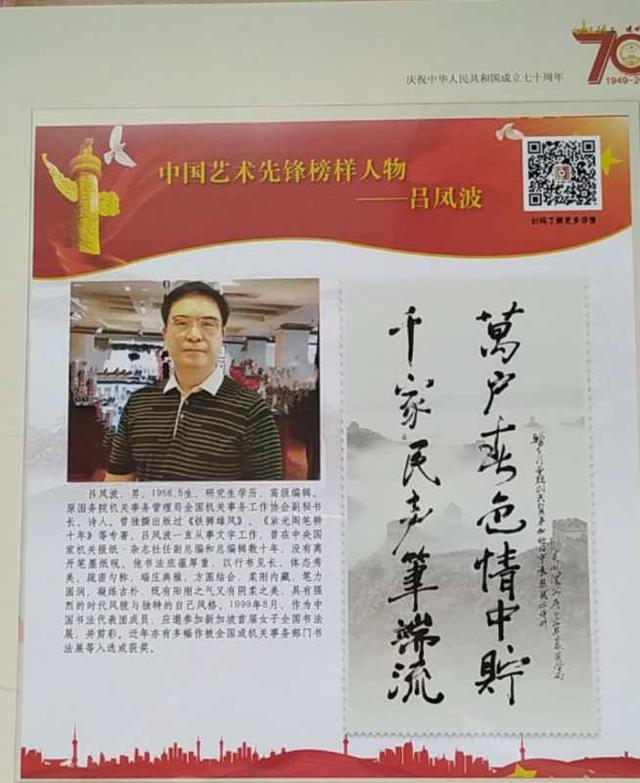 庆祝中华人民共和国成立七十周年
70
中国艺术先锋榜样人物
——吕凤波
扫码了解更多详情
萬户春色情中貯
千家民声筆端流
吕凤波，男，1956.5生，研究生学历，高级编辑。
原国务院机关事务管理局全国机关事务工作协会副秘书
长，诗人。曾独撰出版过《铁狮雄风》、《紫光阁笔耕
十年》等专著。吕凤波一直从事文字工作，曾在中央国
家机关报纸、杂志社任副总编和总编辑数十年，没有离
开笔墨纸砚。他书法底蕴厚重，以行书见长，体态秀
美，疏密匀称，端庄典雅，方圆结合，柔刚内藏，笔力
圆润，凝练古朴，既有阳刚之气又有阴柔之美，具有强
烈的时代风貌与独特的自己风格。1999年8月，作为中
国书法代表团成员，应邀参加新加坡首届女子全国书法
展，并剪彩。近年亦有多幅作被全国或机关事务部门书
法展等入选或获奖。